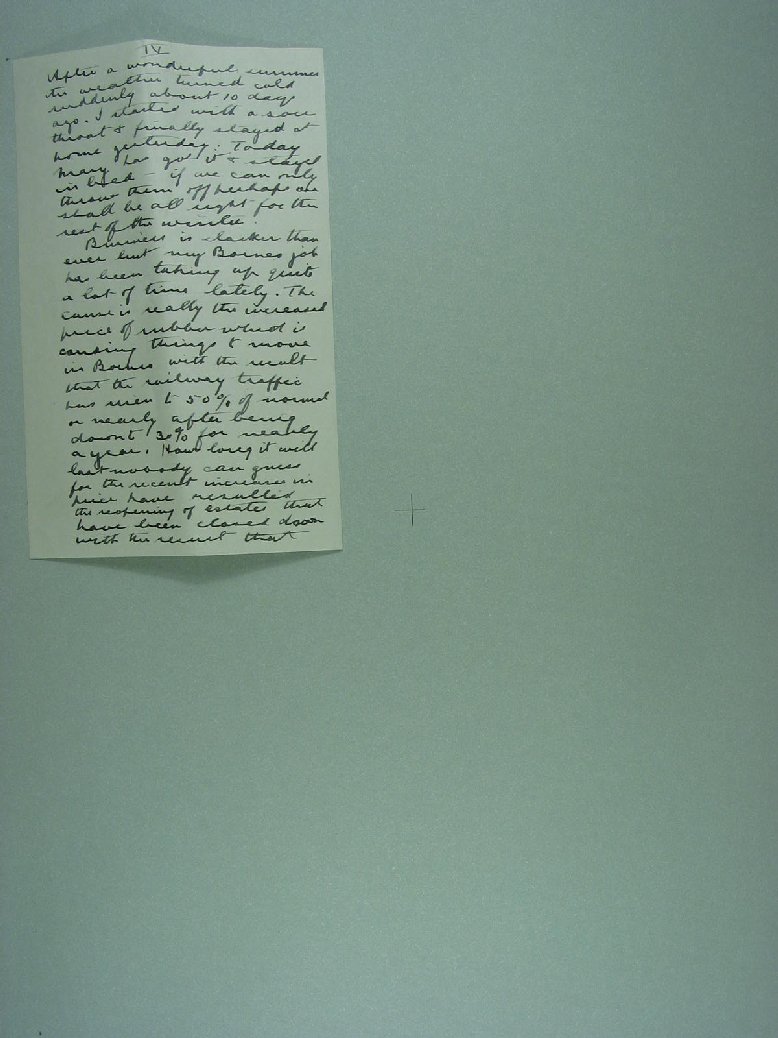 IV
After a wonderful summer
the weather turned cold
suddenly about 10 days
ago. I started with a sore
throat & finally stayed at
home yesterday. Today
Mary has got it & stayed
in bed - if we can only
throw them off perhaps we
shall be all right for the
rest of the winter.
Business is slacker than
ever but my Borneo job
has been taking up quite
a lot of time lately. The
cause is really the increased
price of rubber which is
causing things to move
in Borneo with the result
that the railway traffic
has risen to 50% of normal
or nearly after being
down to 30% for nearly
a year. How long it will
last nobody can guess
for the recent increases in
price have resulted
the reopening of estates that
have been closed down
with the result that